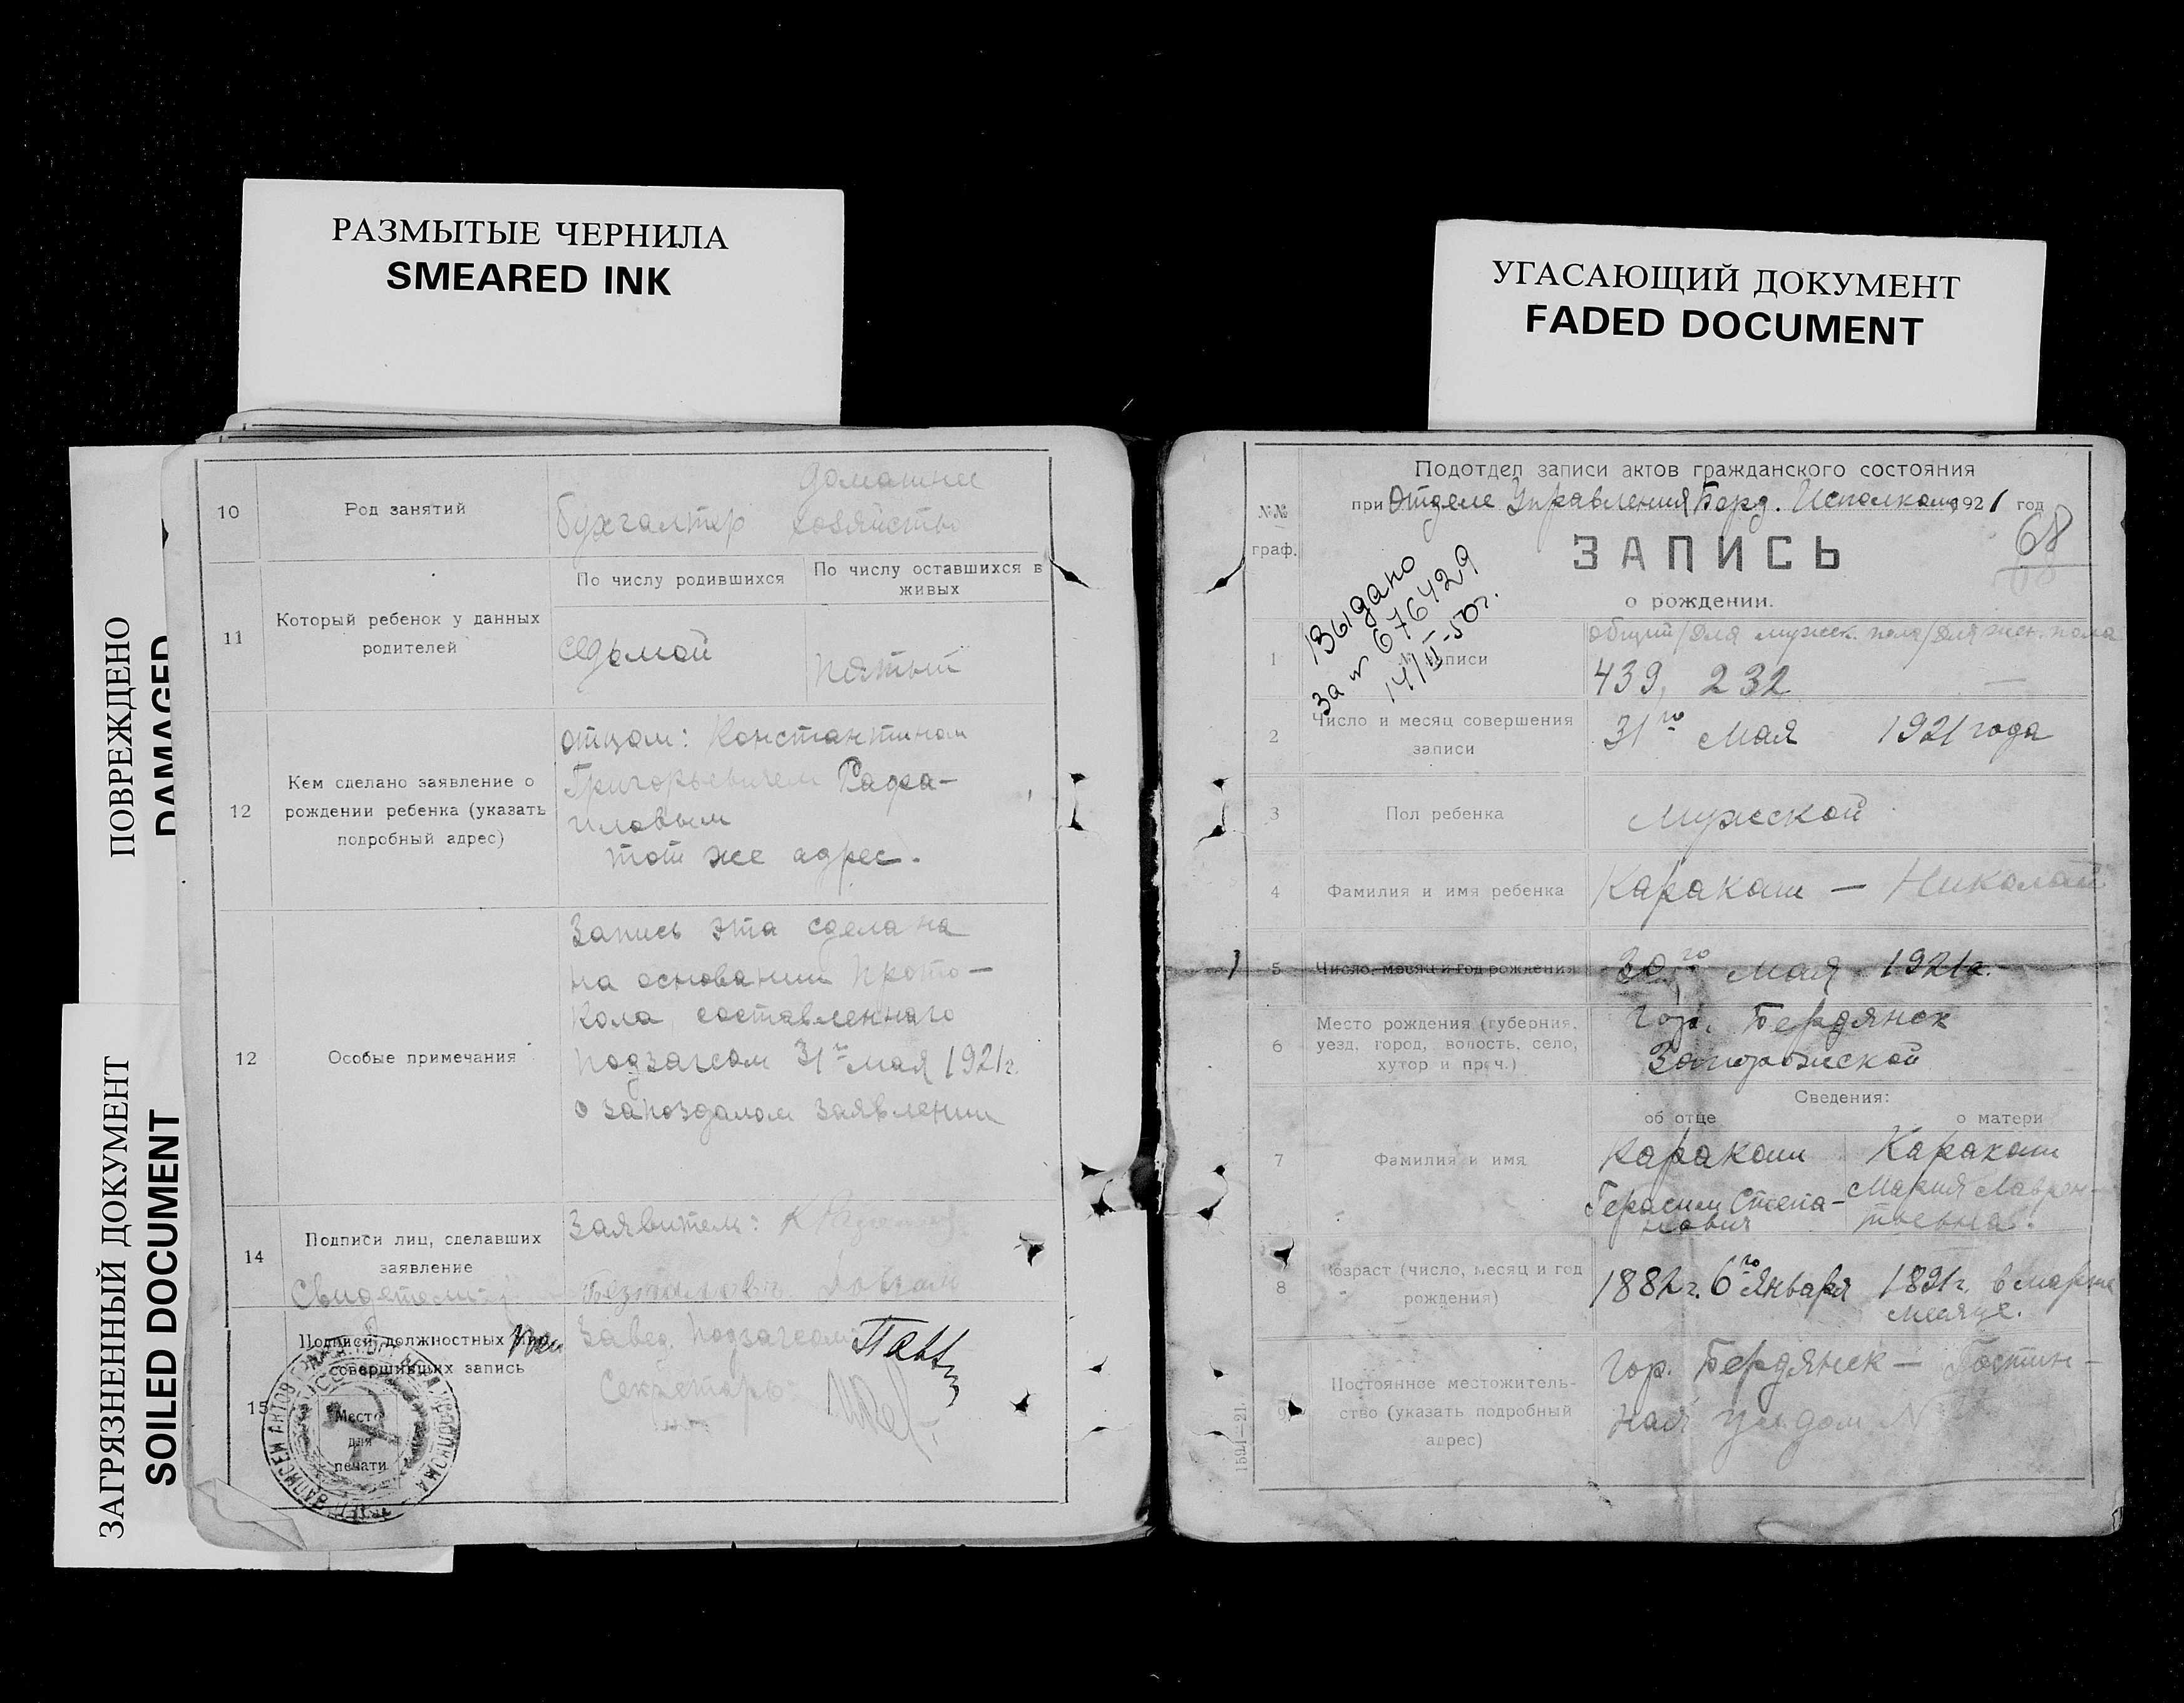 РАЗМЫТЫЕ ЧЕРНИЛА
SMEARED INK
УГАСАЮЩИЙ ДОКУМЕНТ
FADED DOCUMENT
ПОВРЕЖДЕНО
DAMAGED
ЗАГРЯЗНЕННЫЙ ДОКУМЕНТ
SOILED DOCUMENT
10
Род занятий
бухгалтер
домашнее
хозяйство
11
Который ребенок у данных
родителей
По числу родившихся
По числу оставшихся в
живых
седьмой
пятый
12
Кем сделано заявление о
рождении ребенка (указать
подробный адрес)
отцом: Константином
Григорьевичем Рафа-
иловым
тот же адрес.
12
Особые примечания
Запись эта сделана
на основании прото-
кола, составленного
подзагсом 31го мая 1921г.
о запоздалом заявлении
14
Подписи лиц, сделавших
заявление
Заявитель:
Свидетели
15
Подписи должностных лиц
совершивших запись
Завед. подзагсом:
Секретарь
Место
для
печати
Подотдел записи актов гражданского состояния
при Отделе Управления Берд. Исполкома 1921 год
№№
граф.
ЗАПИСЬ
68
о рождении.
Выдано
за № 676429
14/II-50г.
1
№ записи
общий/для мужск. пола/для жен. пола
439, 232 —
2
Число и месяц совершения
записи
31го Мая 1921 года
3
Пол ребенка
Мужской
4
Фамилия и имя ребенка
Каракаш — Николай
5
Число, месяц и год рождения
30го мая 1921г.
6
Место рождения (губерния,
уезд, город, волость, село,
хутор и проч.)
Гор. Бердянск
Запорожской
Сведения:
об отце
о матери
7
Фамилия и имя
Каракаш
Герасим Степа-
нович
Каракаш
Мария Лаврен-
тьевна.
8
Возраст (число, месяц и год
рождения)
1882г. 6го Января
1891г. в марте
месяце.
9
Постоянное местожитель-
ство (указать подробный
адрес)
Гор. Бердянск — Гостин-
ная ул. дом №
1591—21.